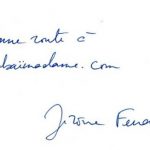 onne route à
baimadame.com
Jérôme